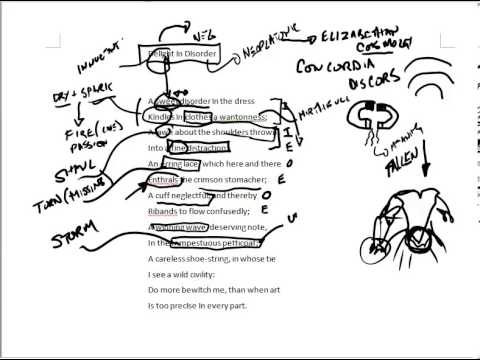 NEG
Delight in Disorder
NEOPLATONIC
ELIZABETHAN
COSMOLOGY
CONCORDIA
DISCORS
INNOCENT
DRY + SPARK
A sweet disorder in the dress
Kindles in clothes a wantonness;
A lawn about the shoulders thrown
Into a fine distraction;
An erring lace, which here and there
Enthrals the crimson stomacher;
A cuff neglectful, and thereby
Ribands to flow confusedly;
A winning wave, deserving note,
In the tempestuous petticoat;
A careless shoe-string, in whose tie
I see a wild civility:
Do more bewitch me, than when art
Is too precise in every part.
I
I
E
O
E
O
E
FIRE
PASSION
SHAWL
TORN/MISSING
STORM
HUMANITY
FALLEN